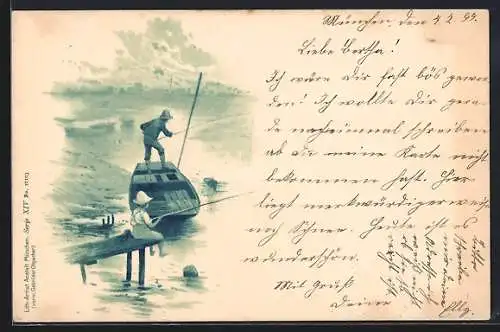 München, den 4.2.99.
Liebe Bertha!
Ich wäre Dir fast bös gewor
den! Ich wollte Dir gera
de nocheinmal schreiben
ob Du meine Karte nicht
bekommen hast. Hier
liegt merkwürdiger weise
noch Schnee. Heute ist es
wunderschön.
Mit Gruß
Deine
Elly.
Lith.-Artist. Anstalt München. Serie XIV No.
(vorm. Gebrüder Obpacher)